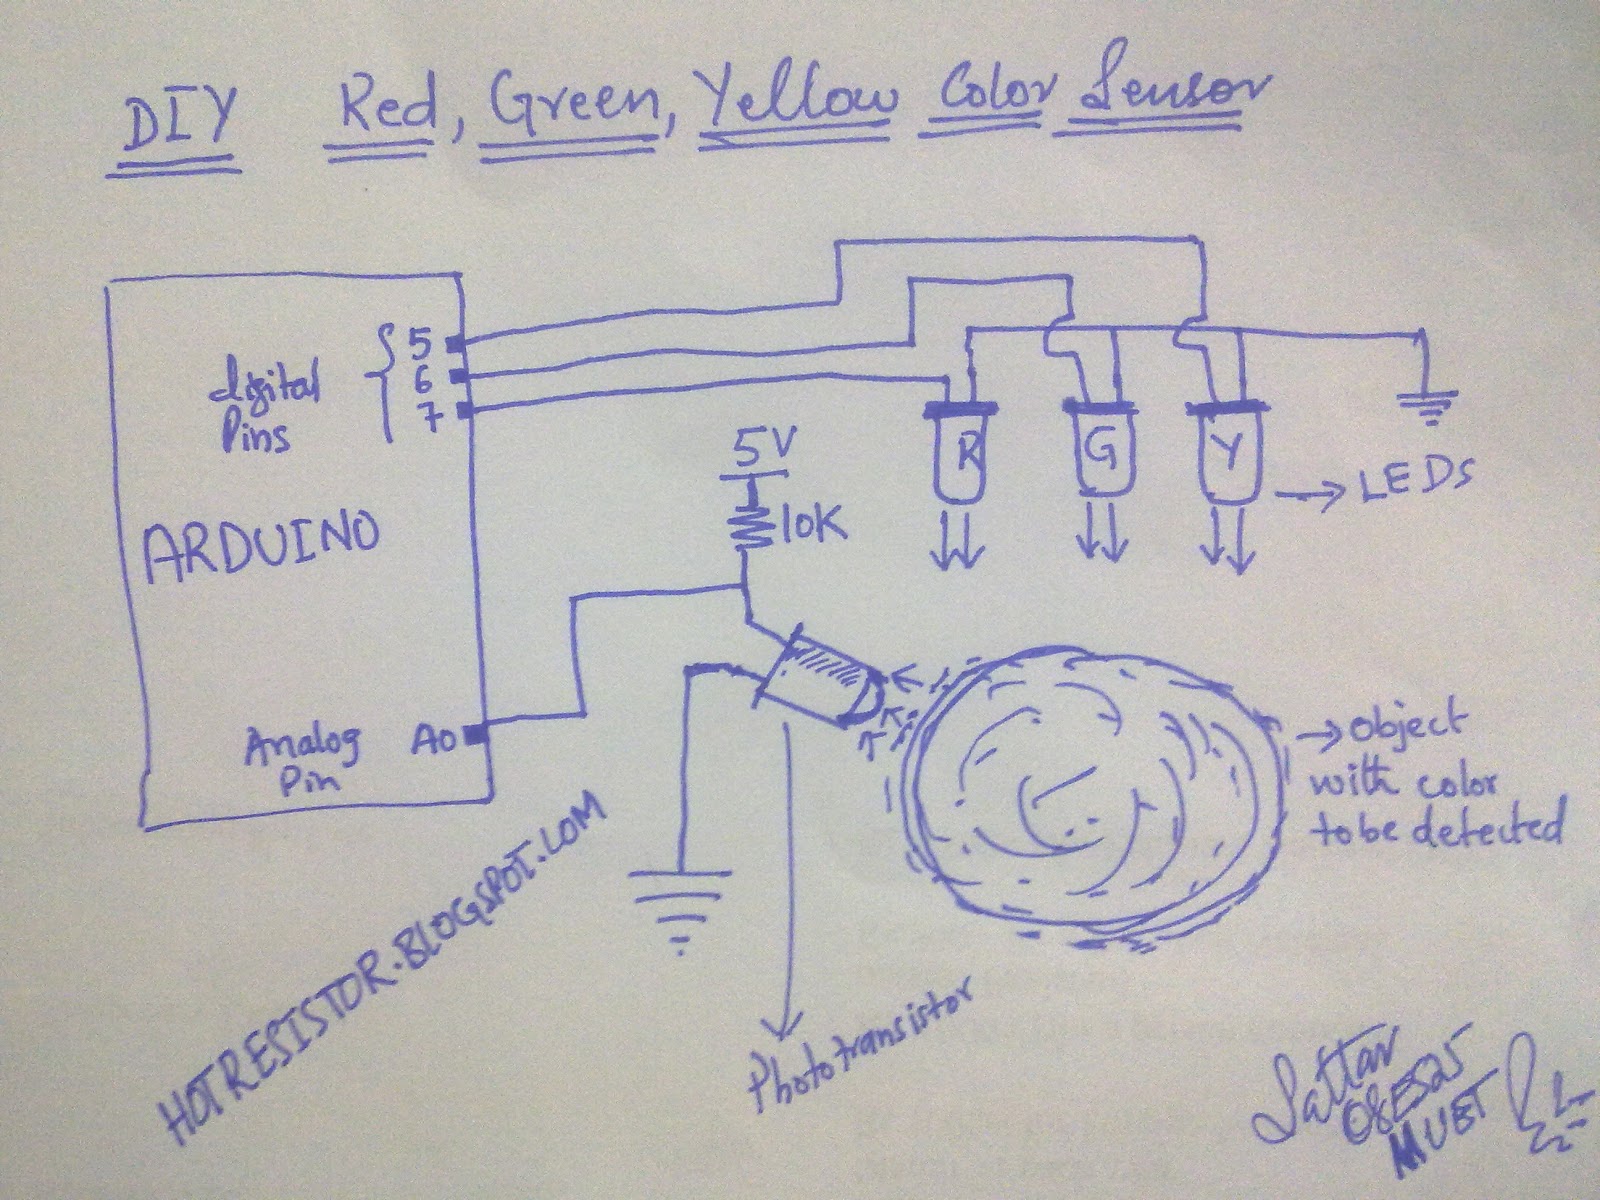 DIY Red, Green, Yellow Color Sensor
5
6
7
digital
Pins
ARDUINO
Analog
Pin
A0
5V
10K
R
G
Y
→ LEDS
→ Object
with color
to be detected
Phototransistor
HOTRESISTOR.BLOGSPOT.COM
Sattar
08ES25
MUET